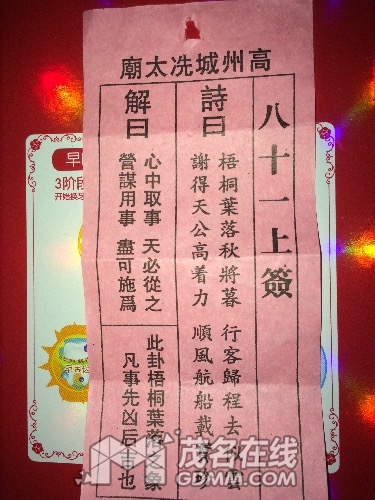 高州城冼太廟
八十一上簽
詩曰
梧桐葉落秋將暮 行客歸程去似雲
謝得天公高着力 順風航船載
解曰
心中取事 天必從之
營謀用事 盡可施爲
此卦梧桐葉落之象
凡事先凶后吉也
早
3阶段
开始换
茂名在线
GDMM.com